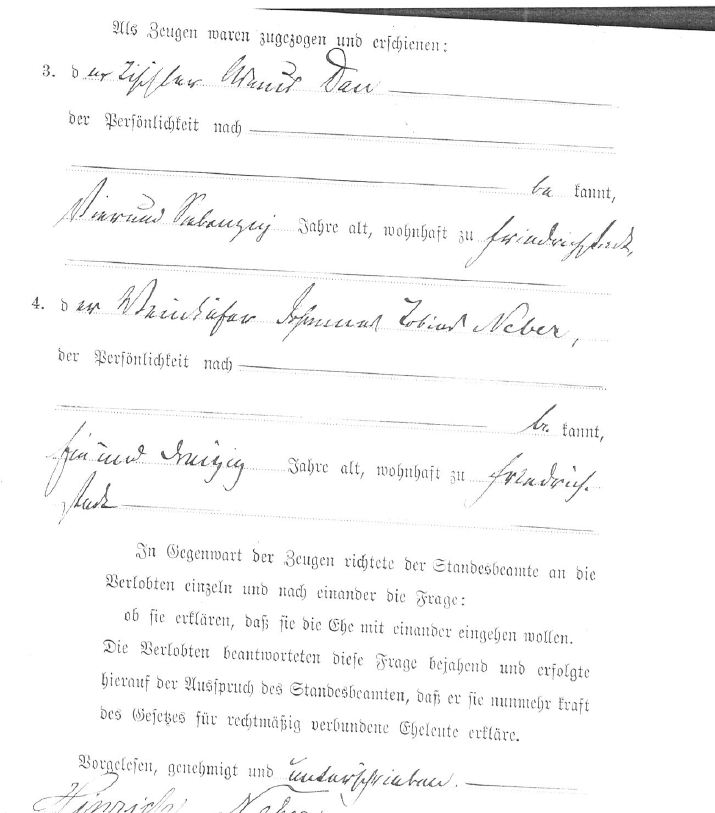 Als Zeugen waren zugezogen und erschienen:
3. der Tischler Claus Dau
der Persönlichkeit nach
be kannt,
Vierund Siebenzig Jahre alt, wohnhaft zu Friedrichstadt,
4. der Johannes Tobias Neber,
der Persönlichkeit nach
be kannt,
Ein und dreißig Jahre alt, wohnhaft zu Friedrich-
stadt
In Gegenwart der Zeugen richtete der Standesbeamte an die
Verlobten einzeln und nach einander die Frage:
ob sie erklären, daß sie die Ehe mit einander eingehen wollen.
Die Verlobten beantworteten diese Frage bejahend und erfolgte
hierauf der Ausspruch des Standesbeamten, daß er sie nunmehr kraft
des Gesetzes für rechtmäßig verbundene Eheleute erkläre.
Vorgelesen, genehmigt und unterschrieben.
Hinrich